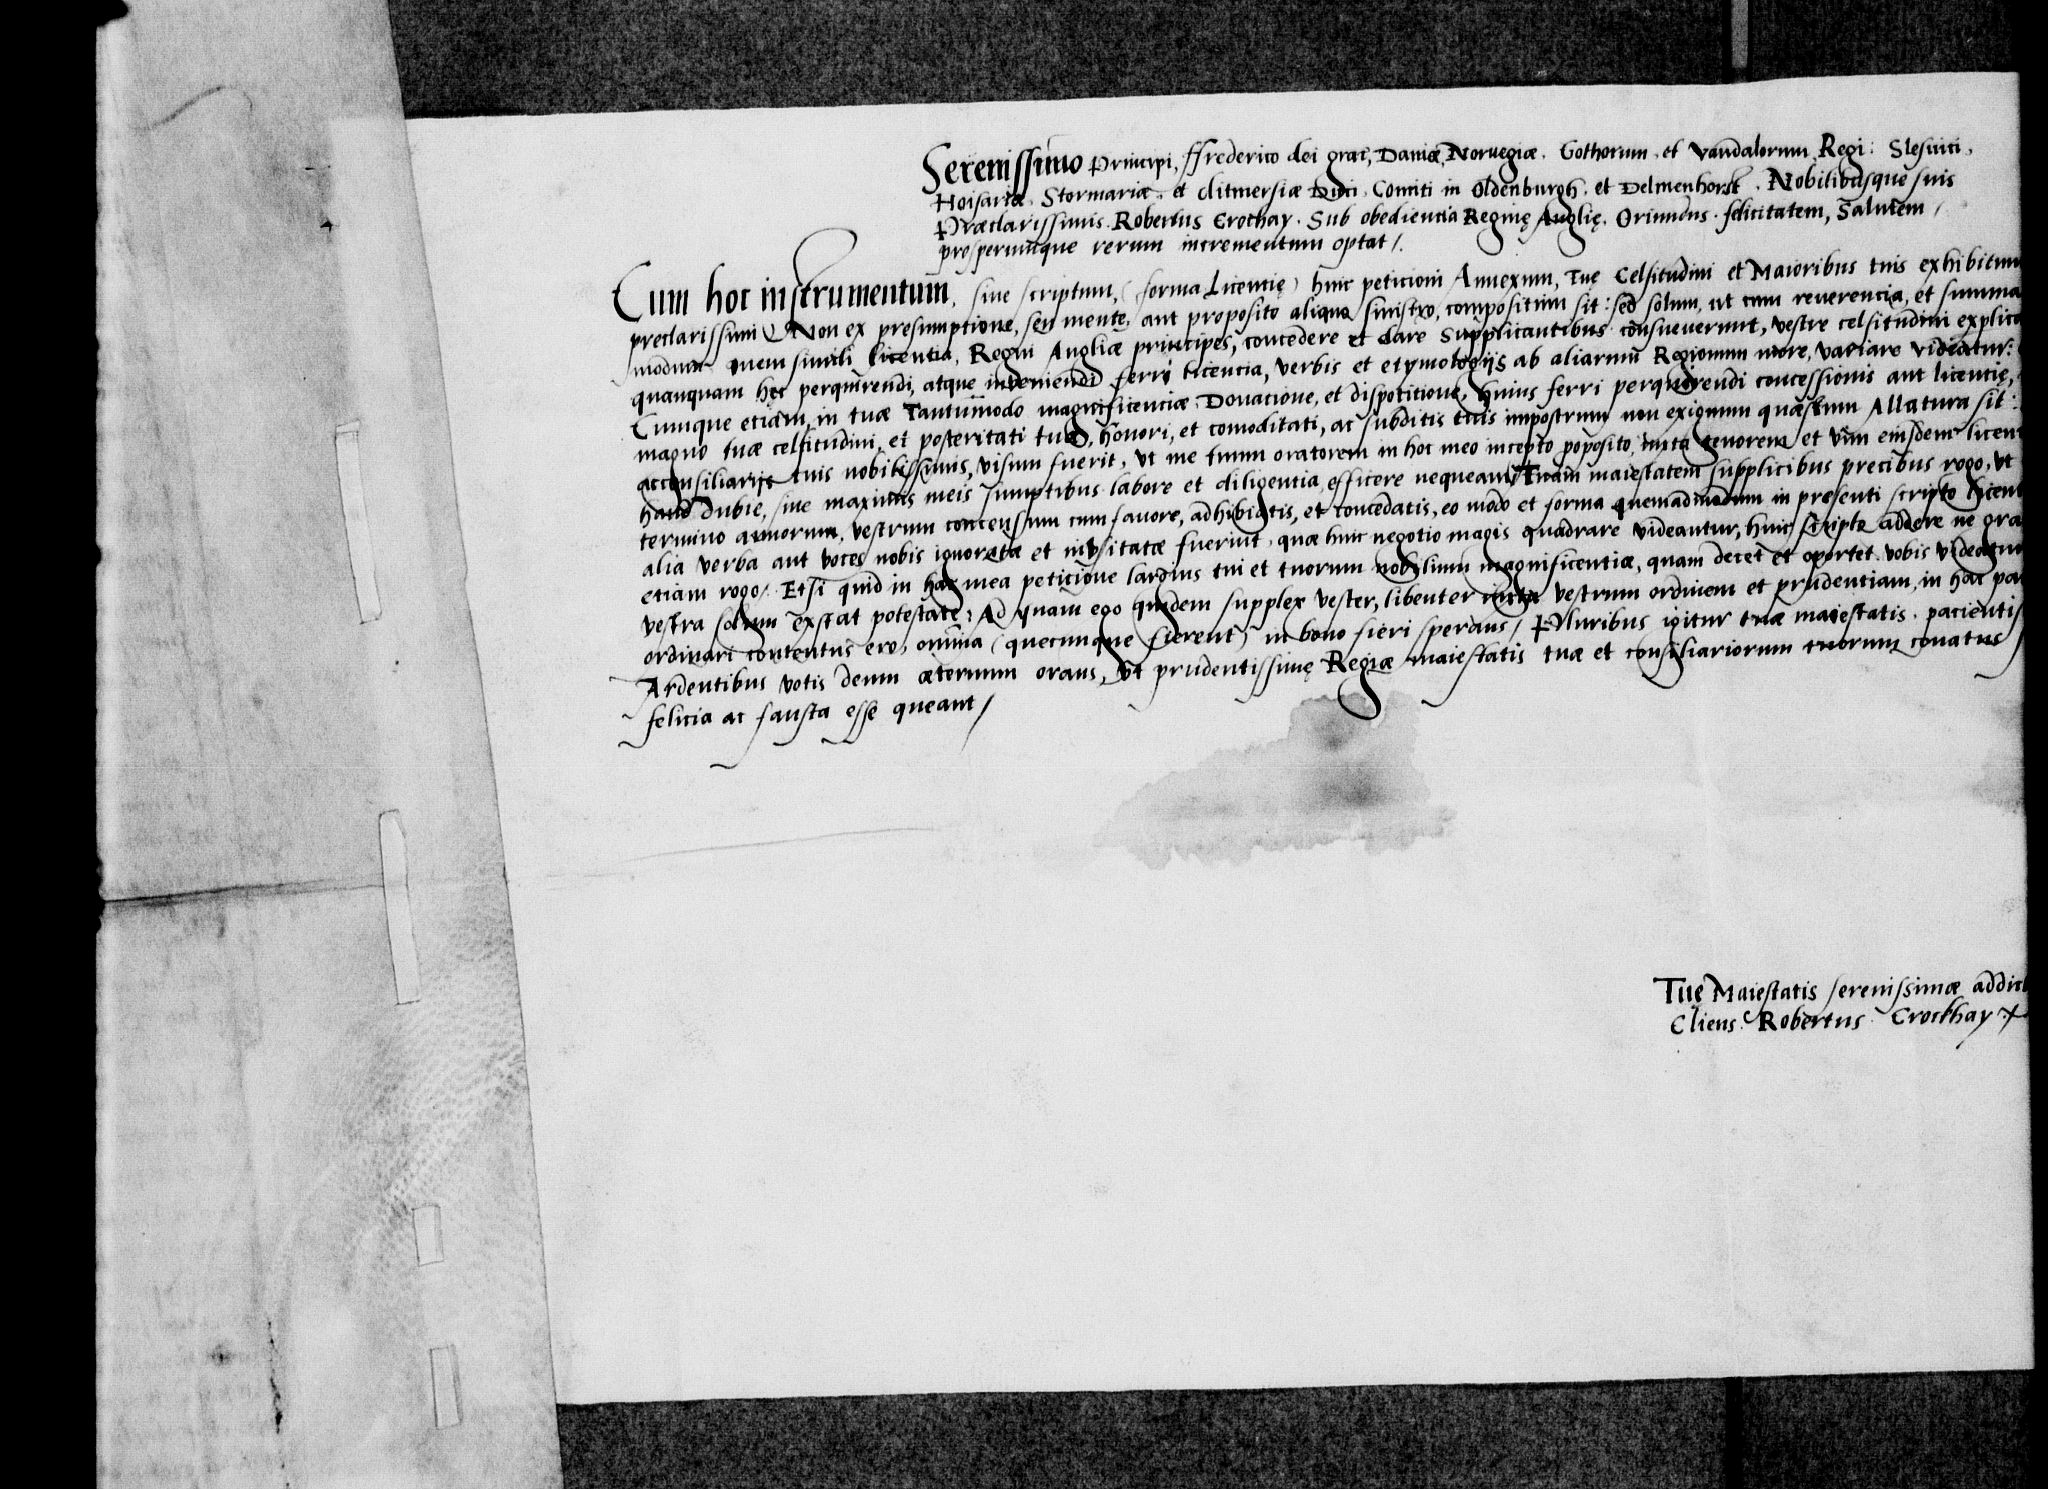 Serenissimo Principi, ffrederico dei grac, Daniæ, Norvegiæ. Gothorum. et vandalorum Regi: Slesuici.
Holsatiæ. Stormariæ. et ditmersiæ Duci. Comiti in Oldenburgh. et Delmenhorst. Nobilibusque suis
Præclarissimis. Robertus Crochay. Sub obediencia Reginę Anglię. Oriundus. felicitatem, Salutem,
prosperumque rerum incrementum optat/.
Cum hoc instrumentum, siue scriptum, (forma Licentię) huic peticioni Annexum, Tuę Celsitudini et Maioribus tuis exhibitum
preclarissimi Non ex presumptione, seu mente, aut proposito aliquo sinistro, compositum sit: sed solum, ut cum reuerencia, et summa
modum quem simili licentia, Regni Angliæ principes, concedere et dare Supplicantibus consueuerunt, vestre celsitudini explico
quanquam hęc perquirendi, atque inveniendi ferri licencia, verbis et etymologijs ab aliarum Regionum more, variare videatur:
Cumque etiam, in tuæ Tantummodo magnificenciæ Donacione, et dispotitione, huius ferri perquirendi concessionis aut licentię,
magno tuæ celsitudini, et posteritati tuæ, honori, et comoditati, ac subditis tuis impostrum non exiguum quæstum Allatura sit:
acconsiliarijs tuis nobilissimis, visum fuerit, vt me tuum oratorem in hoc meo incepto poposito, iuxta tenorem et vim eiusdem licen
haud dubie, sine maximis meis sumptibus labore et diligentia, efficere nequeam/ Tuam maiestatem supplicibus precibus rogo, vt
termino annorum, vestrum concensum cum fauore, adhibeatis, et concedatis, eo modo et forma quemadmodum in presenti scripto licen
alia verba aut voces nobis ignoratæ et inusitatæ fuerint, quæ huic negotio magis quadrare videantur, huic scripto addere ne gra
etiam rogo/. Etsi quid in hac mea peticione largius tui et tuorum nobilium magnificentiæ, quam decet et oportet vobis videatur
vestra solum exstat potestate; Ad quam ego quidem supplex vester, libenter iuxta vestrum ordinem et prudentiam, in hac pa
ordinari contentus ero, omnia (quecunque fierent) in bono fieri sperans/ Pluribus igitur tuæ maiestatis. pacientis
Ardentibus votis deum æternum orans, vt prudentissimę Regiæ maiestatis tuæ et consiliariorum tuorum conatus
felicia ac fausta esse queant/
Tuę Maiestatis serenissimæ addict
Cliens. Robertus Crockhay